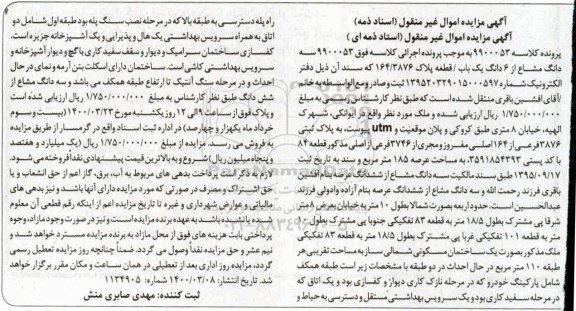 آگهی مزایده اموال غیر منقول (اسناد ذمه)
آگهی مزایده اموال غیر منقول (استاد ذمه ای )
پرونده کلاسه ۹۹۰۰۰۵۳ به موجب پرونده اجرائی کلاسه فوق ۹۹۰۰۰۵۳ سه
دانگ مشاع از ۶ دانگ یک باب / قطعه پلاک ۱۶۴/۳۸۷۶ که سند آن ذیل دفتر
الکترونیک شماره ۱۳۹۵۲۰۳۲۹۰۱۵۰۰۰۵۹۷ ثبت و صادر و مع الواسطه به خانم
/آقای افشین باقری منتقل شده است که طبق نظر کارشناس رسمی به مبلغ
۱/۷۵۰/۰۰۰/۰۰۰ ریال ارزیابی شده و ملک مورد نظر واقع در آیوانکی، شهرک
الهیه، خیابان ۸ متری طبق کروکی و پلان موقعیت و utm پیوست، به پلاک ثبتی
۳۸۷۶ فرعی از ۱۶۴ اصلی مفروز و مجزی از ۳۷۴۶ فرعی از اصلی مذکور قطعه ۸۴
با کد پستی ۳۵۹۱۸۵۴۳۹۳، به مساحت عرصه ۱۸۵ متر مربع و سند به تاریخ ثبت
۱۳۹۵/۰۹/۱۷ طبق سند مالکیت سه دانگ مشاع از ششدانگ عرصه بنام افشین
باقری فرزند رحمت الله و سه دانگ مشاع از ششدانگ عرصه بنام آزاده وادولی فرزند
عبدالحسین است. حدود اربعه بصورت شمالا بطول ۱۰ متر به خیابان بعرض ۸ متر
شرقا پی مشترک بطول ۱۸/۵ متر به قطعه ۸۳ تفکیکی جنوبا پی مشترک بطول ۱۰
متر به قطعه ۱۰۱ تفکیکی غربا پی مشترک بطول ۱۸/۵ متر به قطعه ۸۳ تفکیکی
ملک مذکور بصورت یک ساختمان مسکونی شمالی ساز به مساحت تقریبی هر
طبقه ۱۱۰ متر مربع در حال احداث در دو طبقه با مشخصات زیر است طبقه همکف
شامل پارکینگ خودرو که در مرحله نازک کاری دیوار و کفسازی بود و یک اتاق که
در مرحله سفید کاری بود و یک سرویس بهداشتی مستقل و دسترسی به حیاط و
راه پله دسترسی به طبقه بالا که در مرحله نصب سنگ پله بود طبقه اول شامل دو
اتاق به همراه سرویس بهداشتی یک هال و پذیرایی و یک آشپزخانه جزیره است.
کفسازی ساختمان سرامیک و دیوار و سقف سفید کاری با گچ و دیوار آشپزخانه و
سرویس بهداشتی کاشی است. ساختمان دارای اسکلت بتن آرمه و نمای در حال
احداث و در مرحله سنگ آنتیک تا ارتفاع طبقه همکف می باشد و سه دانگ مشاع از
شش دانگ طبق نظر کارشناس به مبلغ ۱/۷۵۰/۰۰۰/۰۰۰ ریال ارزیابی شده است
و پلاک فوق از ساعت ۹ الی ۱۲ روز یکشنبه مورخ ۱۴۰۰/۰۳/۲۳ (بیست و سوم
خرداد ماه یکهزار و چهارصد) در اداره ثبت اسناد واقع در گرمسار از طریق مزایده
به فروش می رسد. مزایده از مبلغ ۱/۷۵۰/۰۰۰/۰۰۰ ریال (یک میلیارد و هفتصد
و پنجاه میلیون ریال) شروع و به بالاترین قیمت پیشنهادی نقداً فروخته می شود.
لازم به ذکر است پرداخت بدهی های مربوط به آب، برق، گاز اعم از حق انشعاب و یا
حق اشتراک و مصرف در صورتی که مورد مزایده دارای آنها باشد و نیز بدهی های
مالیاتی و عوارض شهرداری و غیره تا تاریخ مزایده اعم از اینکه رقم قطعی آن معلوم
شده یا نشده باشد به عهده برنده مزایده است و نیز در صورت وجود مازاد، وجوه
پرداختی بابت هزینه های فوق از محل مازاد به برنده مزایده مسترد خواهد شد و
نیم عشر و حق مزایده نقداً وصول می گردد. ضمناً چنانچه روز مزایده تعطیل رسمی
گردد، مزایده روز اداری بعد از تعطیلی در همان ساعت و مکان مقرر برگزار خواهد
شد. تاریخ انتشار: ۱۴۰۰/۰۳/۰۸ شماره: ۱۱۳۴۹۰۵
ثبت کننده: مهدی صابری منش